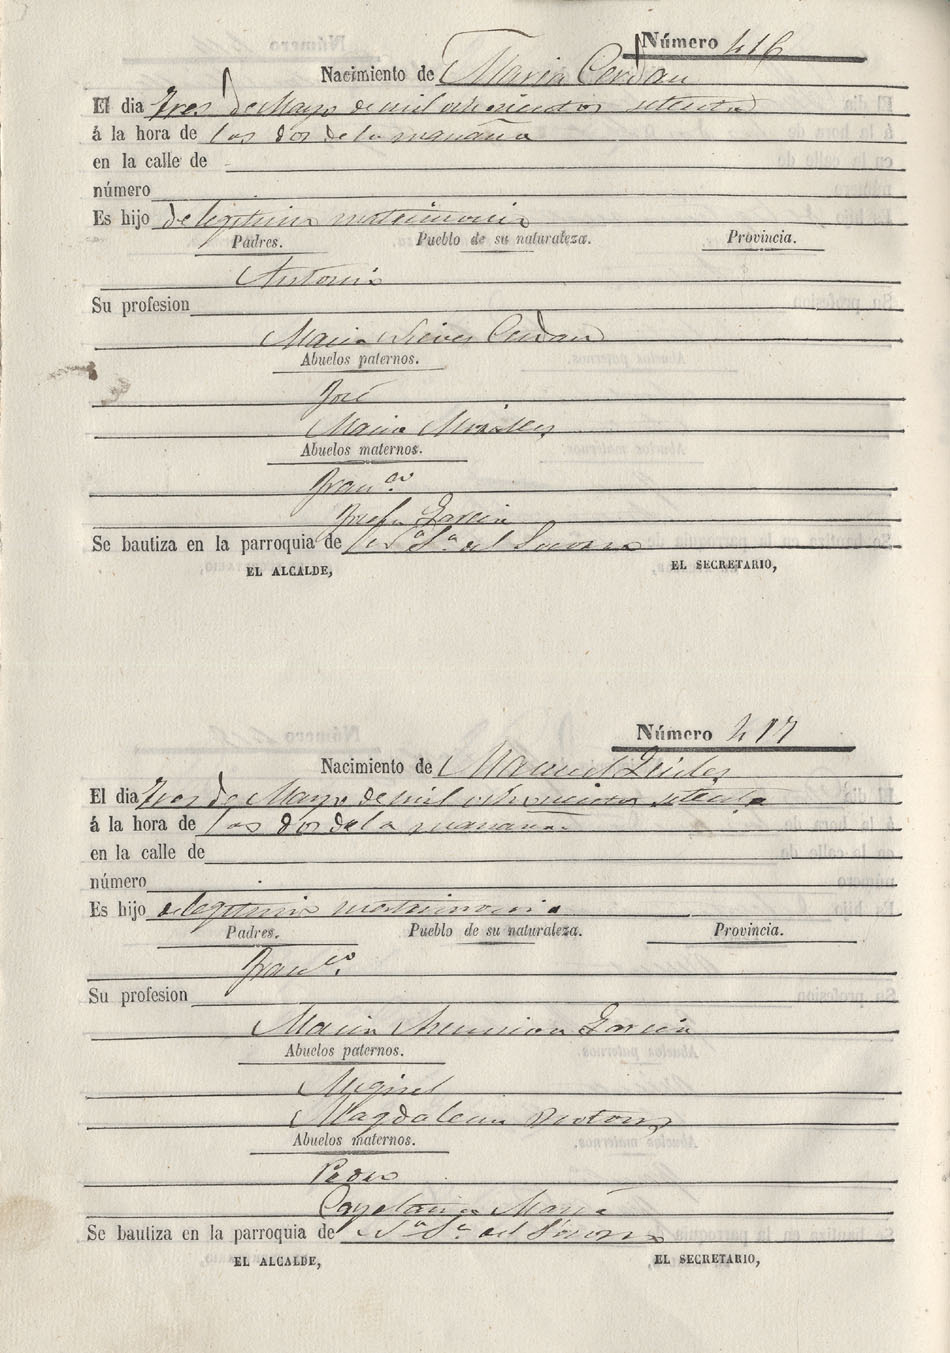 Número 416
Nacimiento de Maria Cerdan
El dia tres de Mayo de mil ochocientos setenta
á la hora de las dos de la mañana
en la calle de
número
Es hijo de legitimo matrimonio
Padres. Pueblo de su naturaleza. Provincia.
Antonio
Su profesion
Maria Nieves Cerdan
Abuelos paternos.
José
Maria Miralles
Abuelos maternos.
Fran.co
Josefa Garcia
Se bautiza en la parroquia de N.a S.a del Socorro
EL ALCALDE, EL SECRETARIO,
Número 417
Nacimiento de Manuel
El dia tres de Mayo de mil ochocientos setenta
á la hora de las dos de la mañana
en la calle de
número
Es hijo de legitimo matrimonio
Padres. Pueblo de su naturaleza. Provincia.
Fran.co
Su profesion
Maria Asuncion Garcia
Abuelos paternos.
Miguel
Magdalena
Abuelos maternos.
Pedro
Cayetana Maria
Se bautiza en la parroquia de N.a S.a del Socorro
EL ALCALDE, EL SECRETARIO,